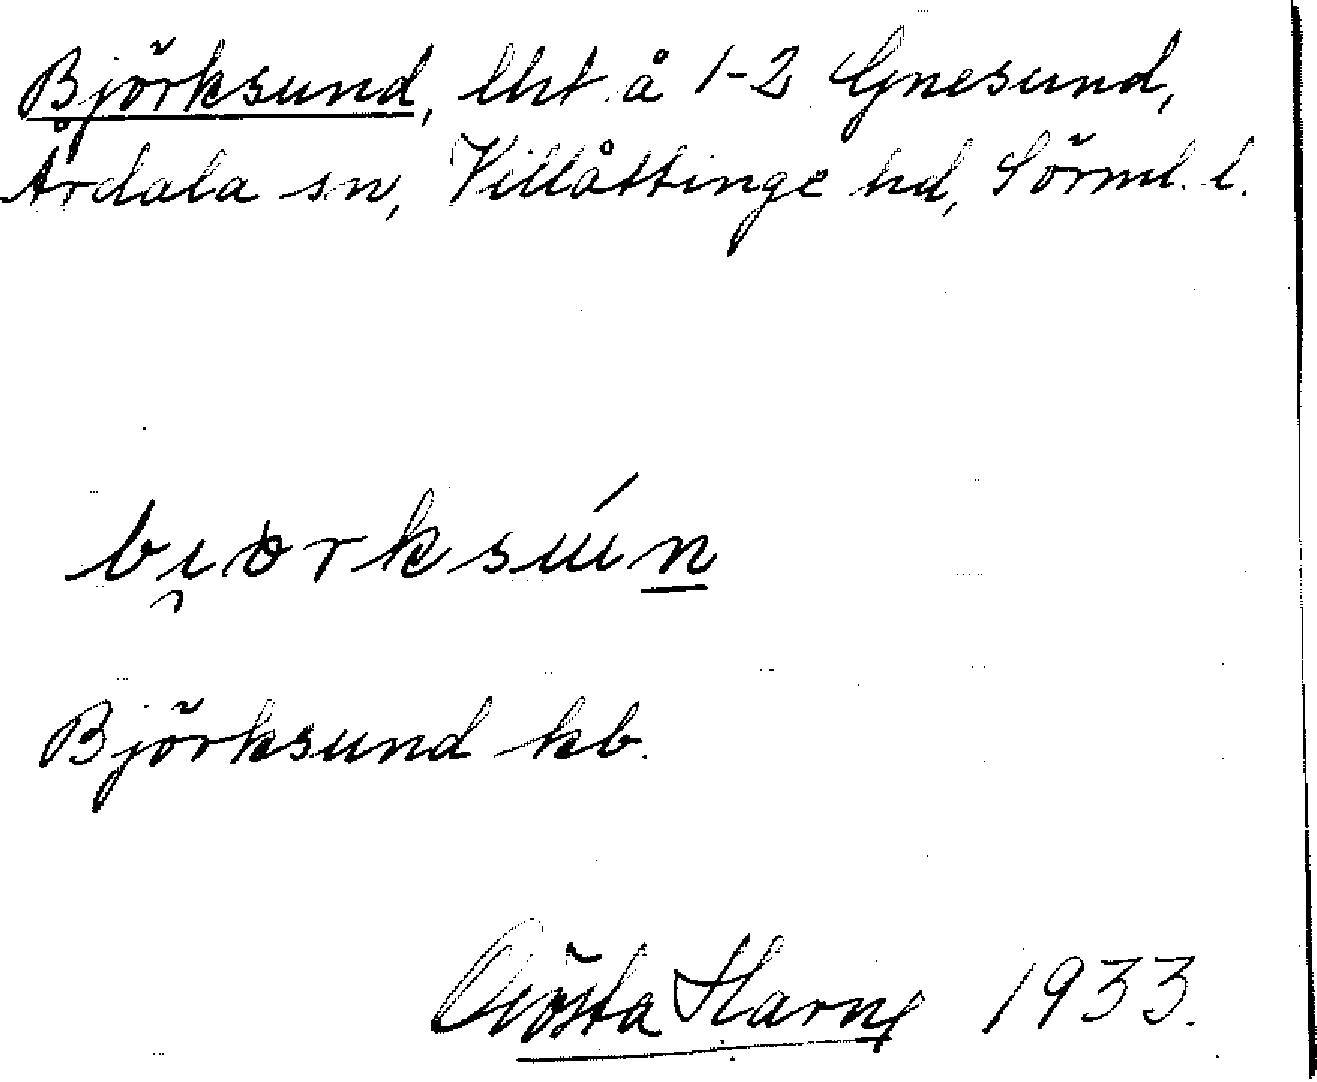 Björksund, lht å 1-2 Gnesund,
Årdala sn, Villåttinge hd, Sörml. l.
Björksund kb.
Gösta 1933.